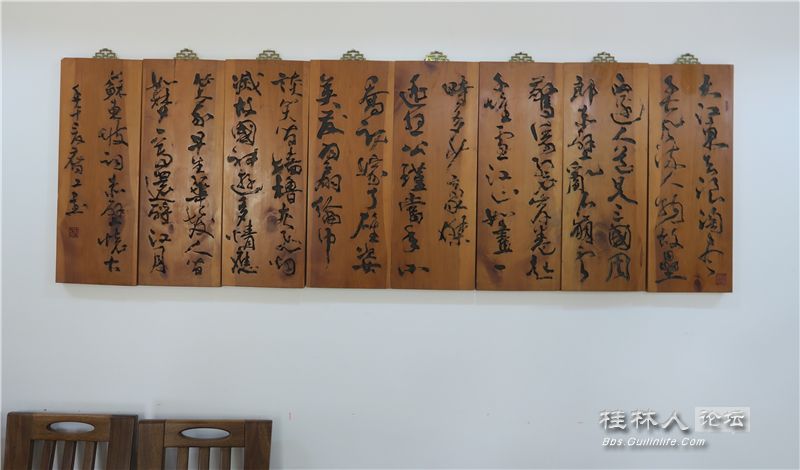 大江東去浪淘盡
千古風流人物故壘
西邊人道是三國周
郎赤壁亂石崩雲
驚濤裂岸卷起
千堆雪江山如畫一
時多少豪傑
遙想公瑾當年小
喬初嫁了雄姿
英發羽扇綸巾
談笑間檣櫓灰飛煙
滅故國神遊多情應
笑我早生華髮人間
如夢一尊還酹江月
蘇東坡詞赤壁懷古
桂林人论坛
Bbs.Guilinlife.Com